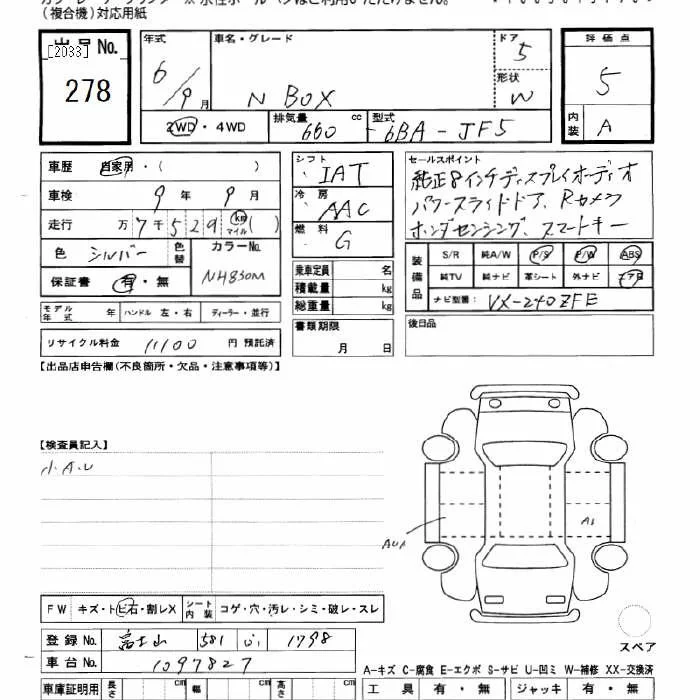 (複合機)対応用紙
出品No.
[2033]
278
年式 6/9月
車名・グレード N BOX
ドア 5
形状 W
評価点 5
内装 A
2WD・4WD
排気量 660 cc
型式 6BA-JF5
車歴 自家用・( )
車検 9年 9月
走行 万7千529 km マイル ( )
色 シルバー 色替 カラーNo. NH830M
保証書 有・無
モデル年式 年 ハンドル 左・右 ディーラー・並行
リサイクル料金 11100 円 預託済
シフト IAT
冷房 AAC
燃料 G
乗車定員 名
積載量 kg
総重量 kg
書類期限 月 日
セールスポイント
純正8インチディスプレイオーディオ
パワースライドドア、Rカメラ
ホンダセンシング、スマートキー
装備品 S/R 純A/W P/S P/W ABS
純TV 純ナビ 革シート 外ナビ エアB
ナビ型番: VX-240ZFE
後日品
【出品店申告欄(不良箇所・欠品・注意事項等)】
【検査員記入】
小AU
AUA
A1
FW キズ・トビ石・割レX シート内装 コゲ・穴・汚レ・シミ・破レ・スレ
登録No. 富士山 581 い 1798
車台No. 1097827
スペア
A-キズ C-腐食 E-エクボ S-サビ U-凹ミ W-補修 XX-交換済
車庫証明用 長さ cm 幅 cm 高さ cm
工具 有・無 ジャッキ 有・無